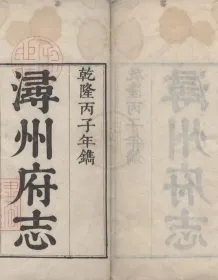 乾隆丙子年鐫
潯州府志